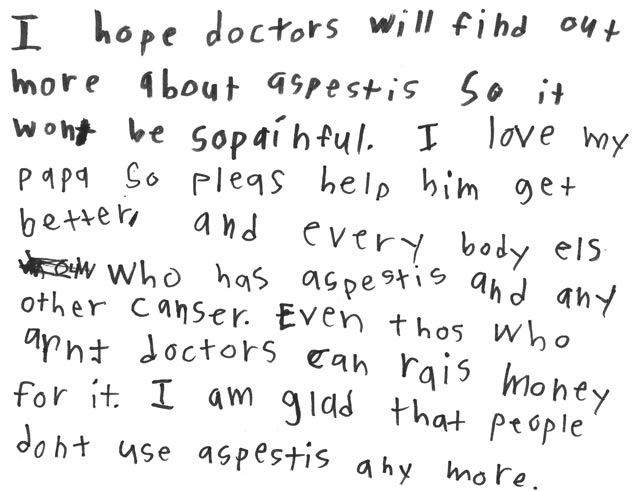 I hope doctors will find out
more about aspestis so it
wont be sopainful. I love my
papa so pleas help him get
better, and every body els
who has aspestis and any
other canser. Even thos who
arnt doctors can rais money
for it. I am glad that people
dont use aspestis any more.